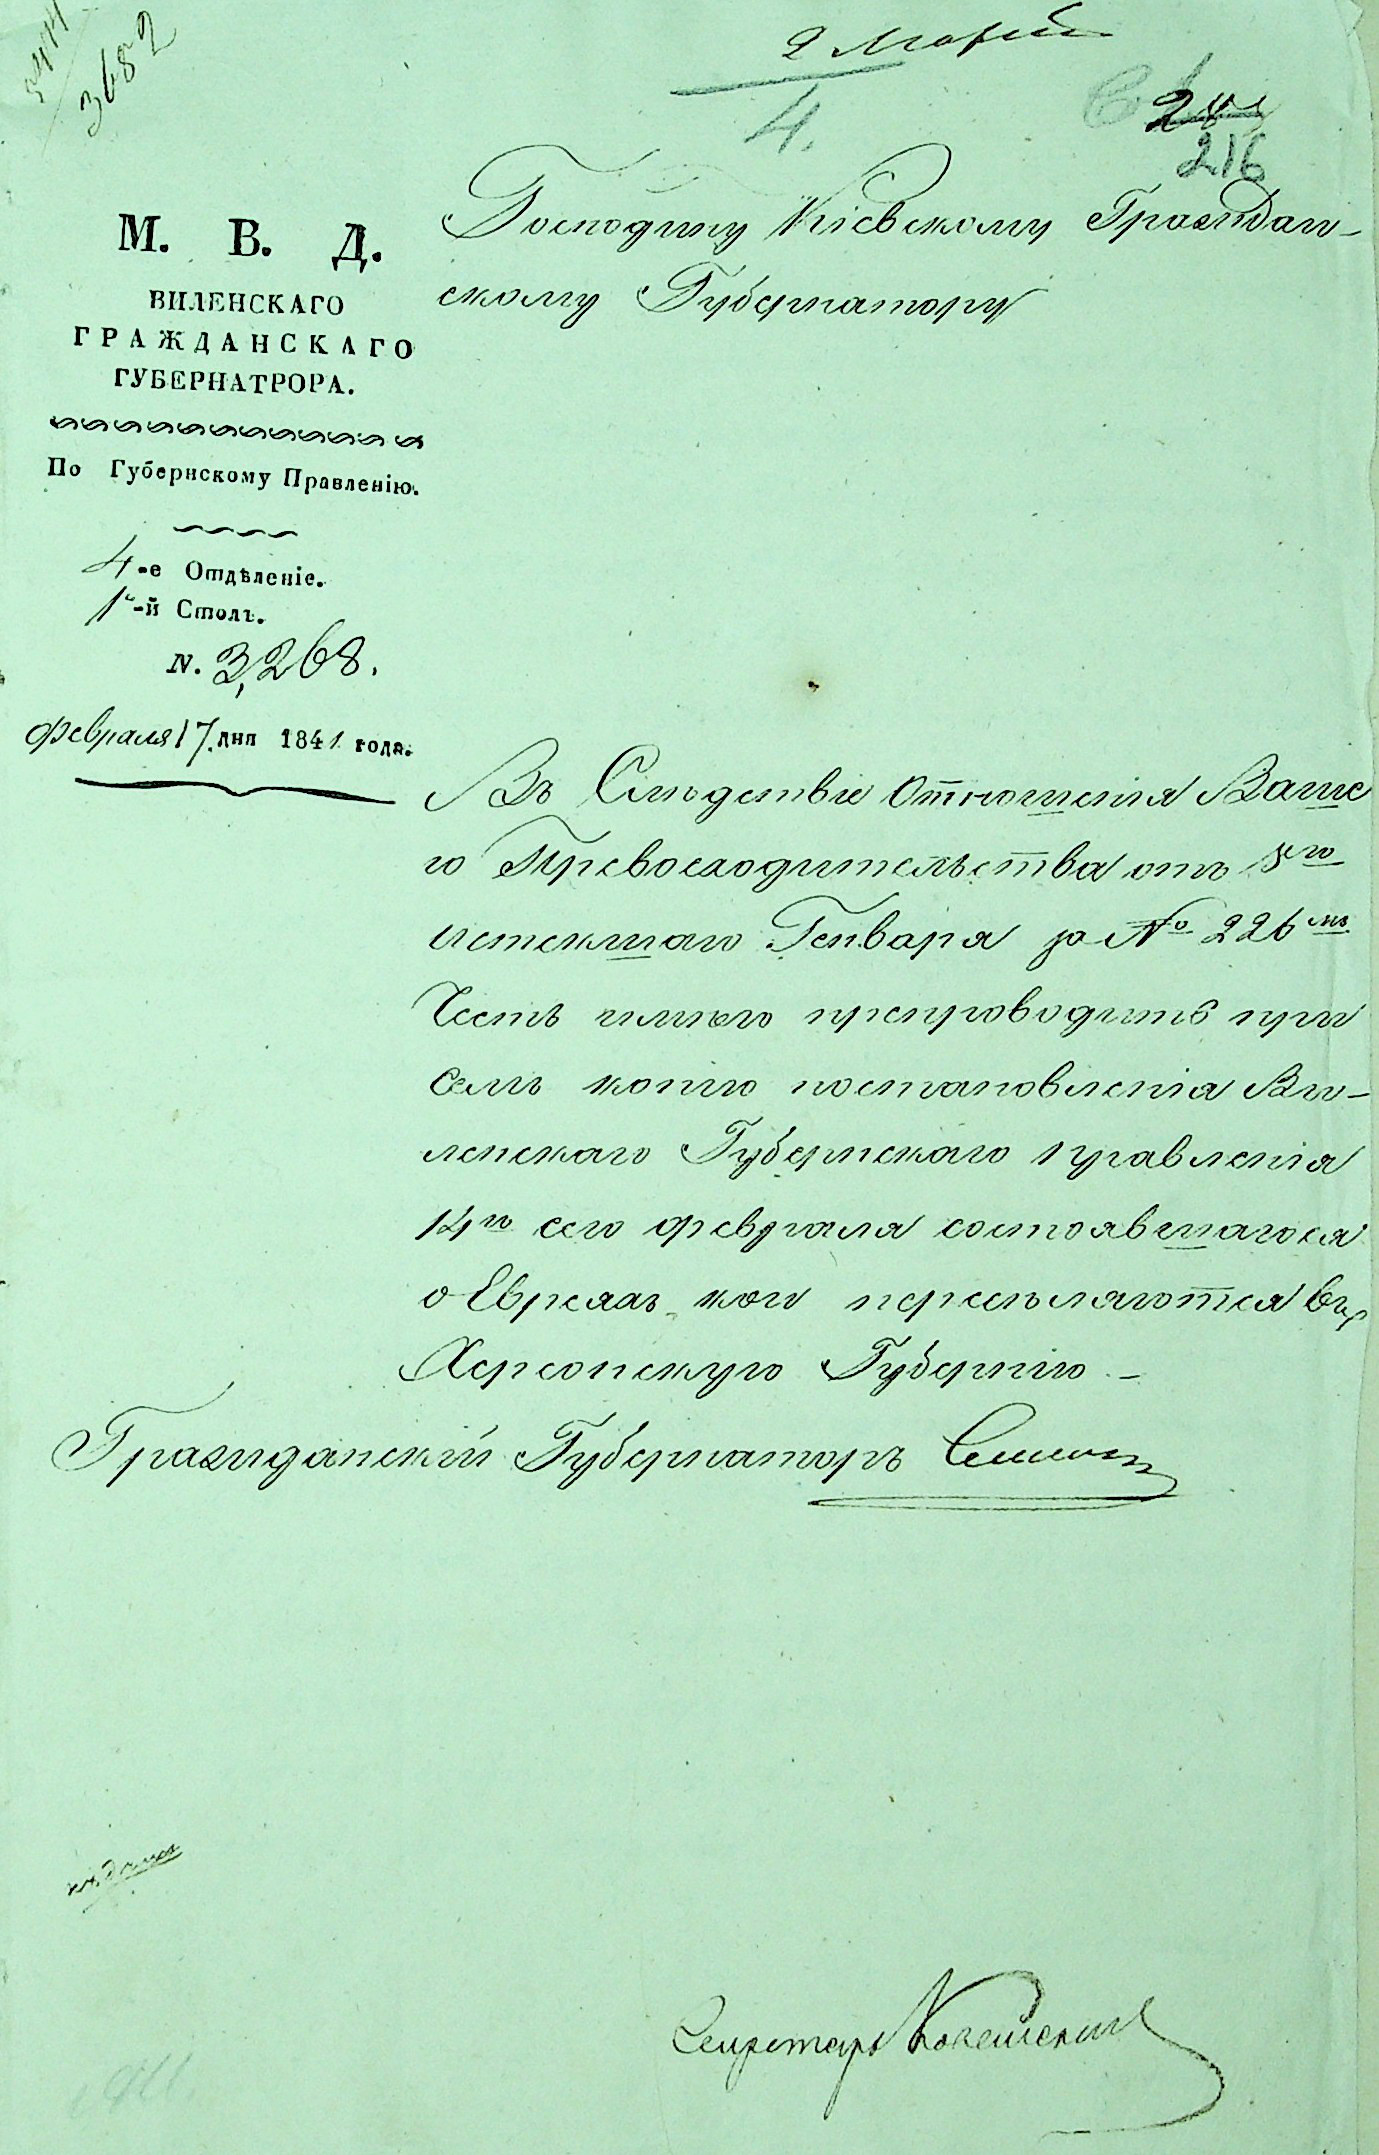 3682
2 Марта
4.
216
М. В. Д.
ВИЛЕНСКАГО
ГРАЖДАНСКАГО
ГУБЕРНАТРОРА.
По Губернскому Правленію.
4-е Отдѣленіе.
1-й Столъ.
N. 3,268.
февраля 17 дня 1841 года.
Господину Кіевскому Граждан-
скому Губернатору
Въ Слѣдствіе Отношенія Ваше
го Превосходительства отъ 8го
истекшаго Генваря за № 226мъ
Честь имѣю препроводить при
семъ копію постановленія Ви-
ленскаго Губернскаго Правленія
14го сего февраля состоявшагося
о Евреяхъ кои переселяются въ
Херсонскую Губернію
Гражданскій Губернаторъ
Секретарь